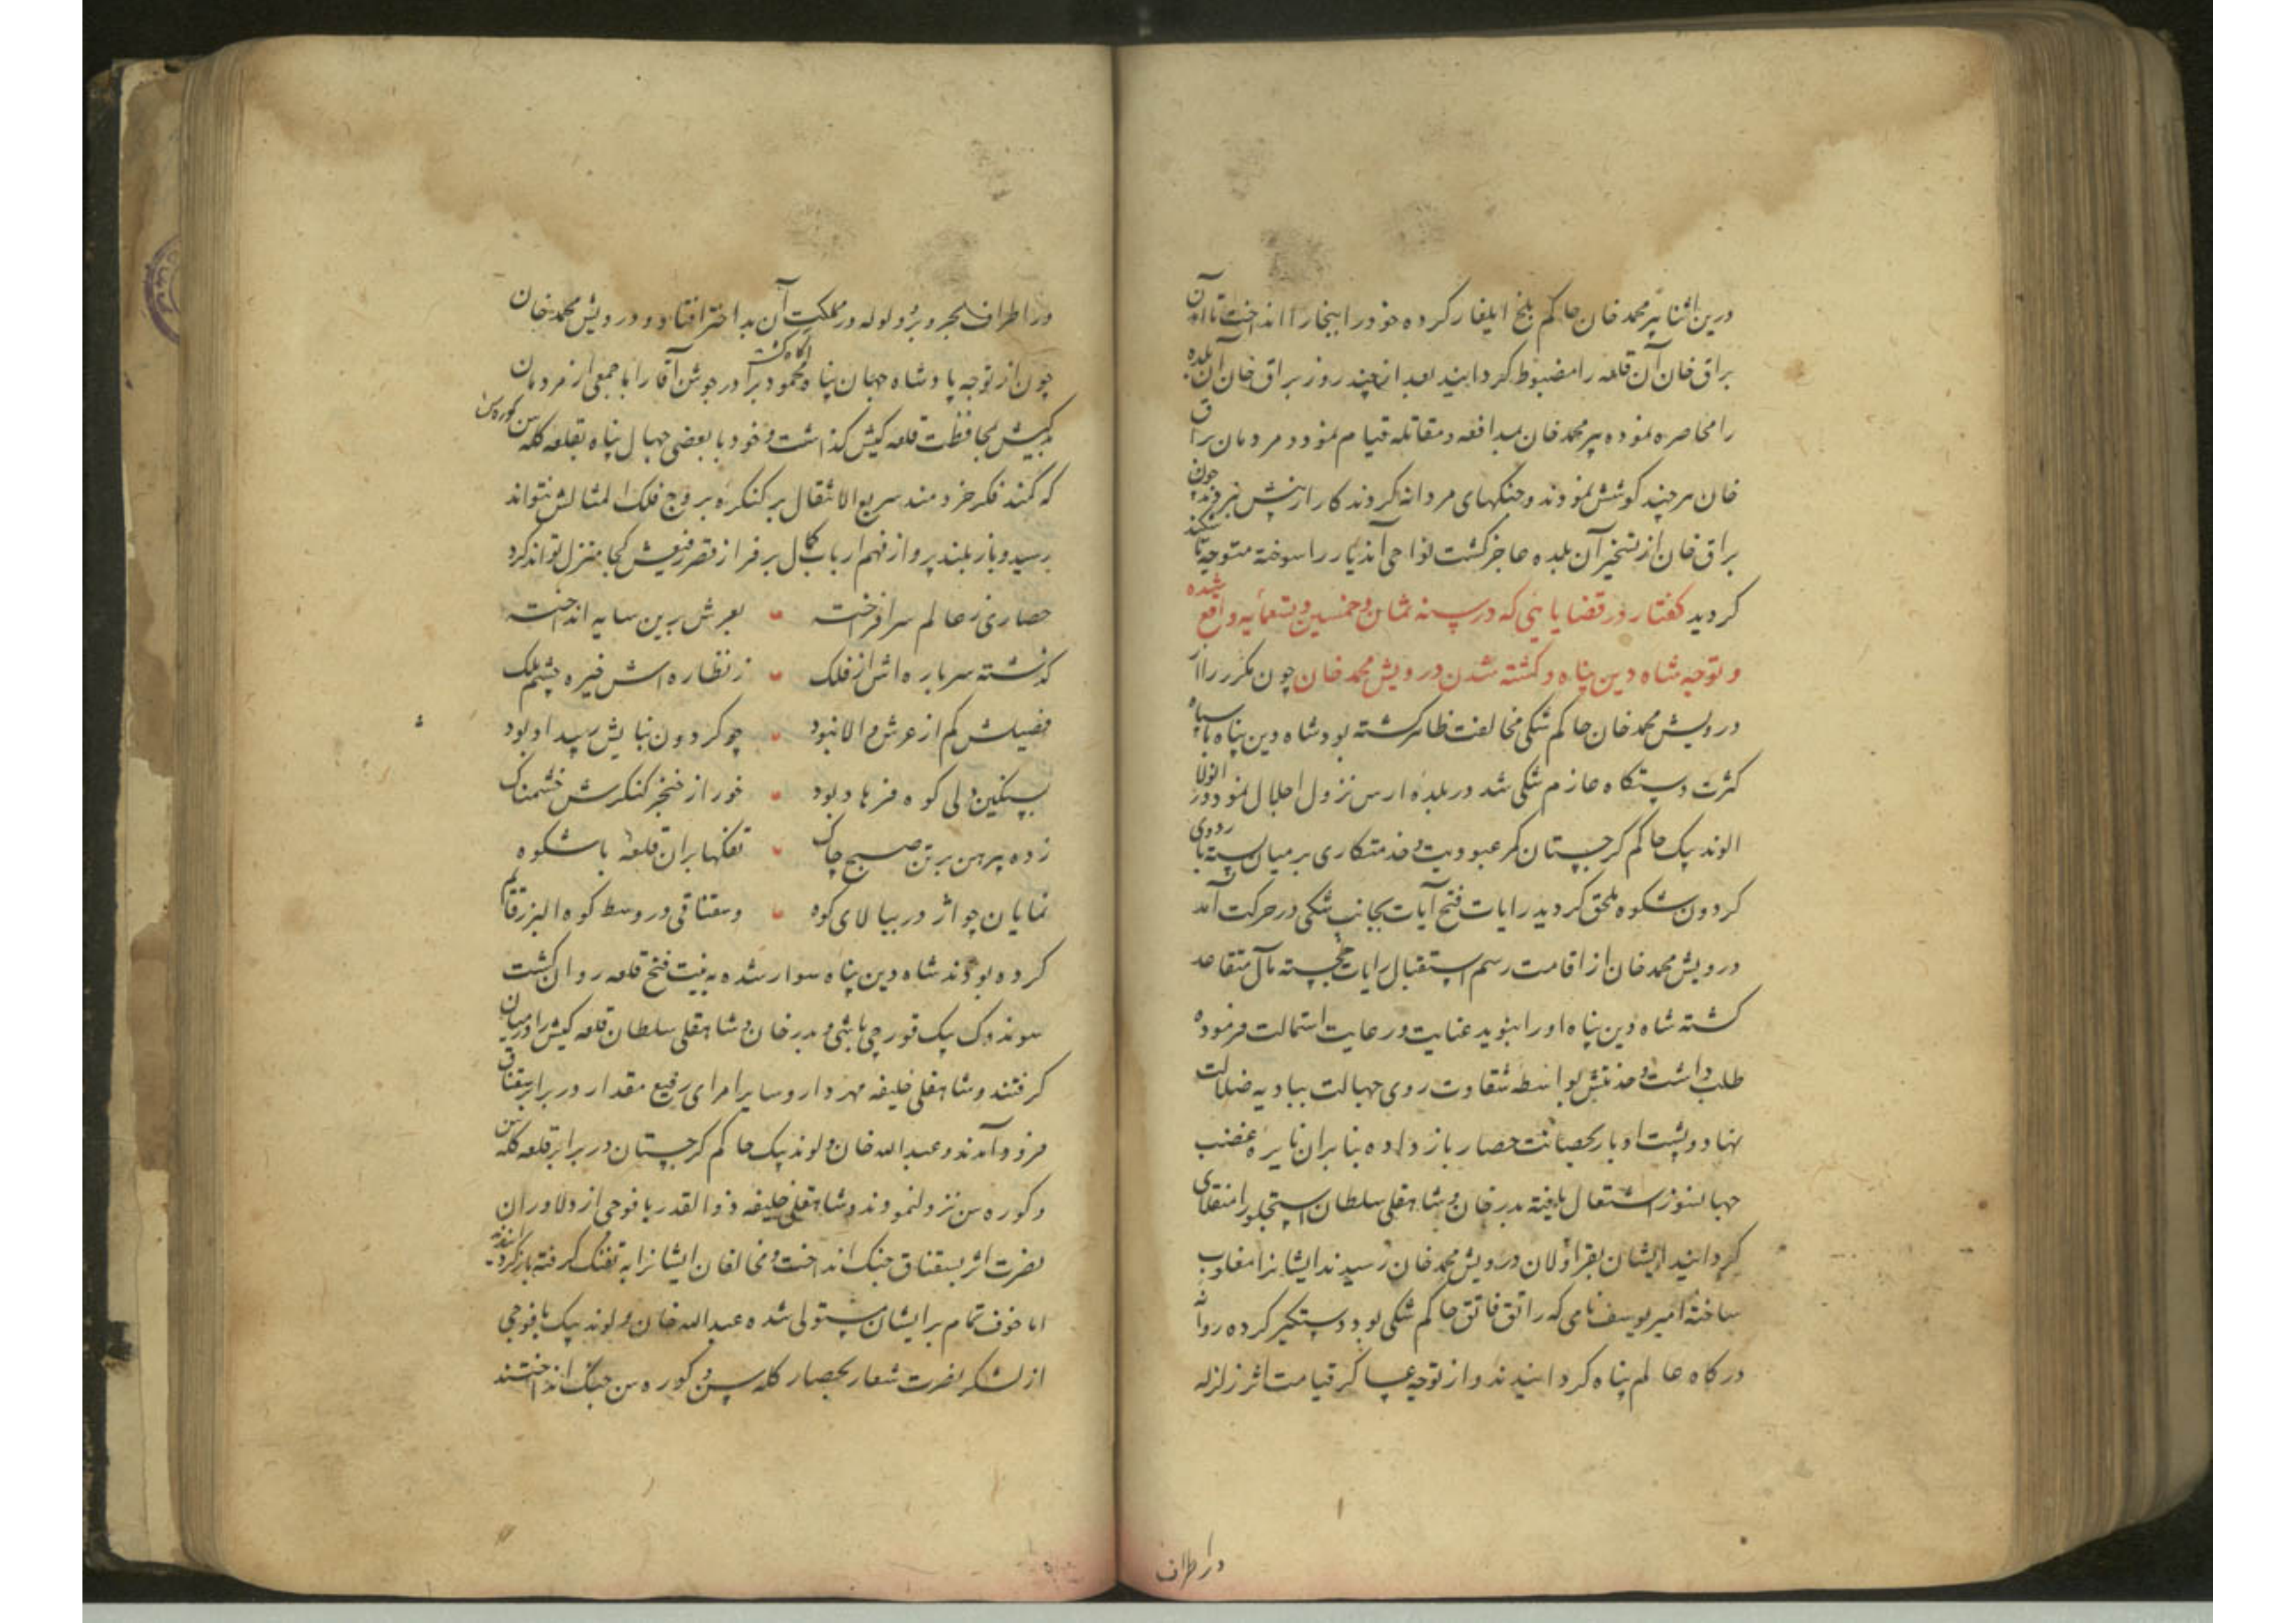 درین اثنا پیر محمد خان حاکم بلخ ایلغار کرده خود را ببخارا انداخت تا آن
براق خان آن قلعه را مضبوط کردانید بعد از چند روز براق خان آن بلده
را محاصره نموده پیر محمد خان بمدافعه و مقاتله قیام نمود و مردمان براق
خان هر چند کوشش نمودند و جنکهای مردانه کردند کار از پیش نبردند چون
براق خان از تسخیر آن بلده عاجز کشت نواحی آندیار را سوخته متوجه تاشکند
کردید کفتار در قضایایی که در سنه ثمان و خمسین و تسعمایه واقع شده
و توجه شاه دین پناه و کشته شدن درویش محمد خان چون مکرر از
درویش محمد خان حاکم شکی مخالفت ظاهر کشته بود شاه دین پناه با سپاه
کثرت دستکاه عازم شکی شد در بلده ارس نزول اجلال نمود
الوند بیک حاکم کرجستان کمر عبودیت و خدمتکاری بر میان بسته باردوی
کردون شکوه ملحق کردید رایات فتح آیات بجانب شکی در حرکت آمد
درویش محمد خان از اقامت رسم استقبال رایات خجسته مآل متقاعد
کشته شاه دین پناه او را بنوید عنایت و رعایت استمالت فرموده
طلب داشت و خدمتش بواسطه شقاوت روی جهالت ببادیه ضلالت
نهاد و پشت ادبار بحصانت حصار باز داده بنابران نایره غضب
جهانسوز اشتعال یافته بدر خان و شاهقلی سلطان استجلو را منقلای
کردانید ایشان بقراولان درویش محمد خان رسیدند ایشانرا مغلوب
ساخته امیر یوسف نامی که راتق فاتق حاکم شکی بود دستکیر کرده روانه
درکاه عالم پناه کردانیدند و از توجه عساکر قیامت اثر زلزله
در اطراف
در اطراف بحر و بر و ولوله در مملکت آن بد اختر افتاد و درویش محمد خان
چون از توجه پادشاه جهان پناه آکاه کشت محمود برادر جوشن آقا را با جمعی از مردمان
کیش بمحافظت قلعه کیش کذاشت و خود با بعضی جهال پناه بقلعه کله سن کوره سن
که کمند فکر خردمند سریع الانتقال بر کنکره بروج فلک امثالش نتواند
رسید و باز بلند پرواز فهم ارباب کمال بر فراز قصر رفیعش کجا منزل تواند کرد
حصاری ز عالم سر افراخته بعرش برین سایه انداخته
کذشته سر باره اش از فلک ز نظاره اش خیره چشم ملک
فصیلش کم از عرش والا نبود چو کردون بنایش پیدا نبود
بسنکین دلی کوه فرهاد بود خور از خنجر کنکرش خشمناک
زده پیرهن بر تن صبح چاک تفنکها بران قلعه باشکوه
نمایان چو اژدر ببالای کوه و سقناقی در وسط کوه البرز قایم
کرده بودند شاه دین پناه سوار شده به نیت فتح قلعه روان کشت
سوندوک بیک قورچی باشی و بدر خان و شاهقلی سلطان قلعه کیش را در میان
کرفتند و شاهقلی خلیفه مهردار و سایر امرای رفیع مقدار در برابر سقناق
فرود آمدند و عبدالله خان و لوند بیک حاکم کرجستان در برابر قلعه کله سن
و کوره سن نزول نمودند و شاهقلی خلیفه ذوالقدر با فوجی از دلاوران
نصرت اثر بسقناق جنک انداخت و مخالفان ایشانرا به تفنک کرفته باز کردانیدند
اما خوف تمام بر ایشان مستولی شده عبدالله خان و لوند بیک با فوجی
از لشکر نصرت شعار بحصار کله سن و کوره سن جنک انداختند